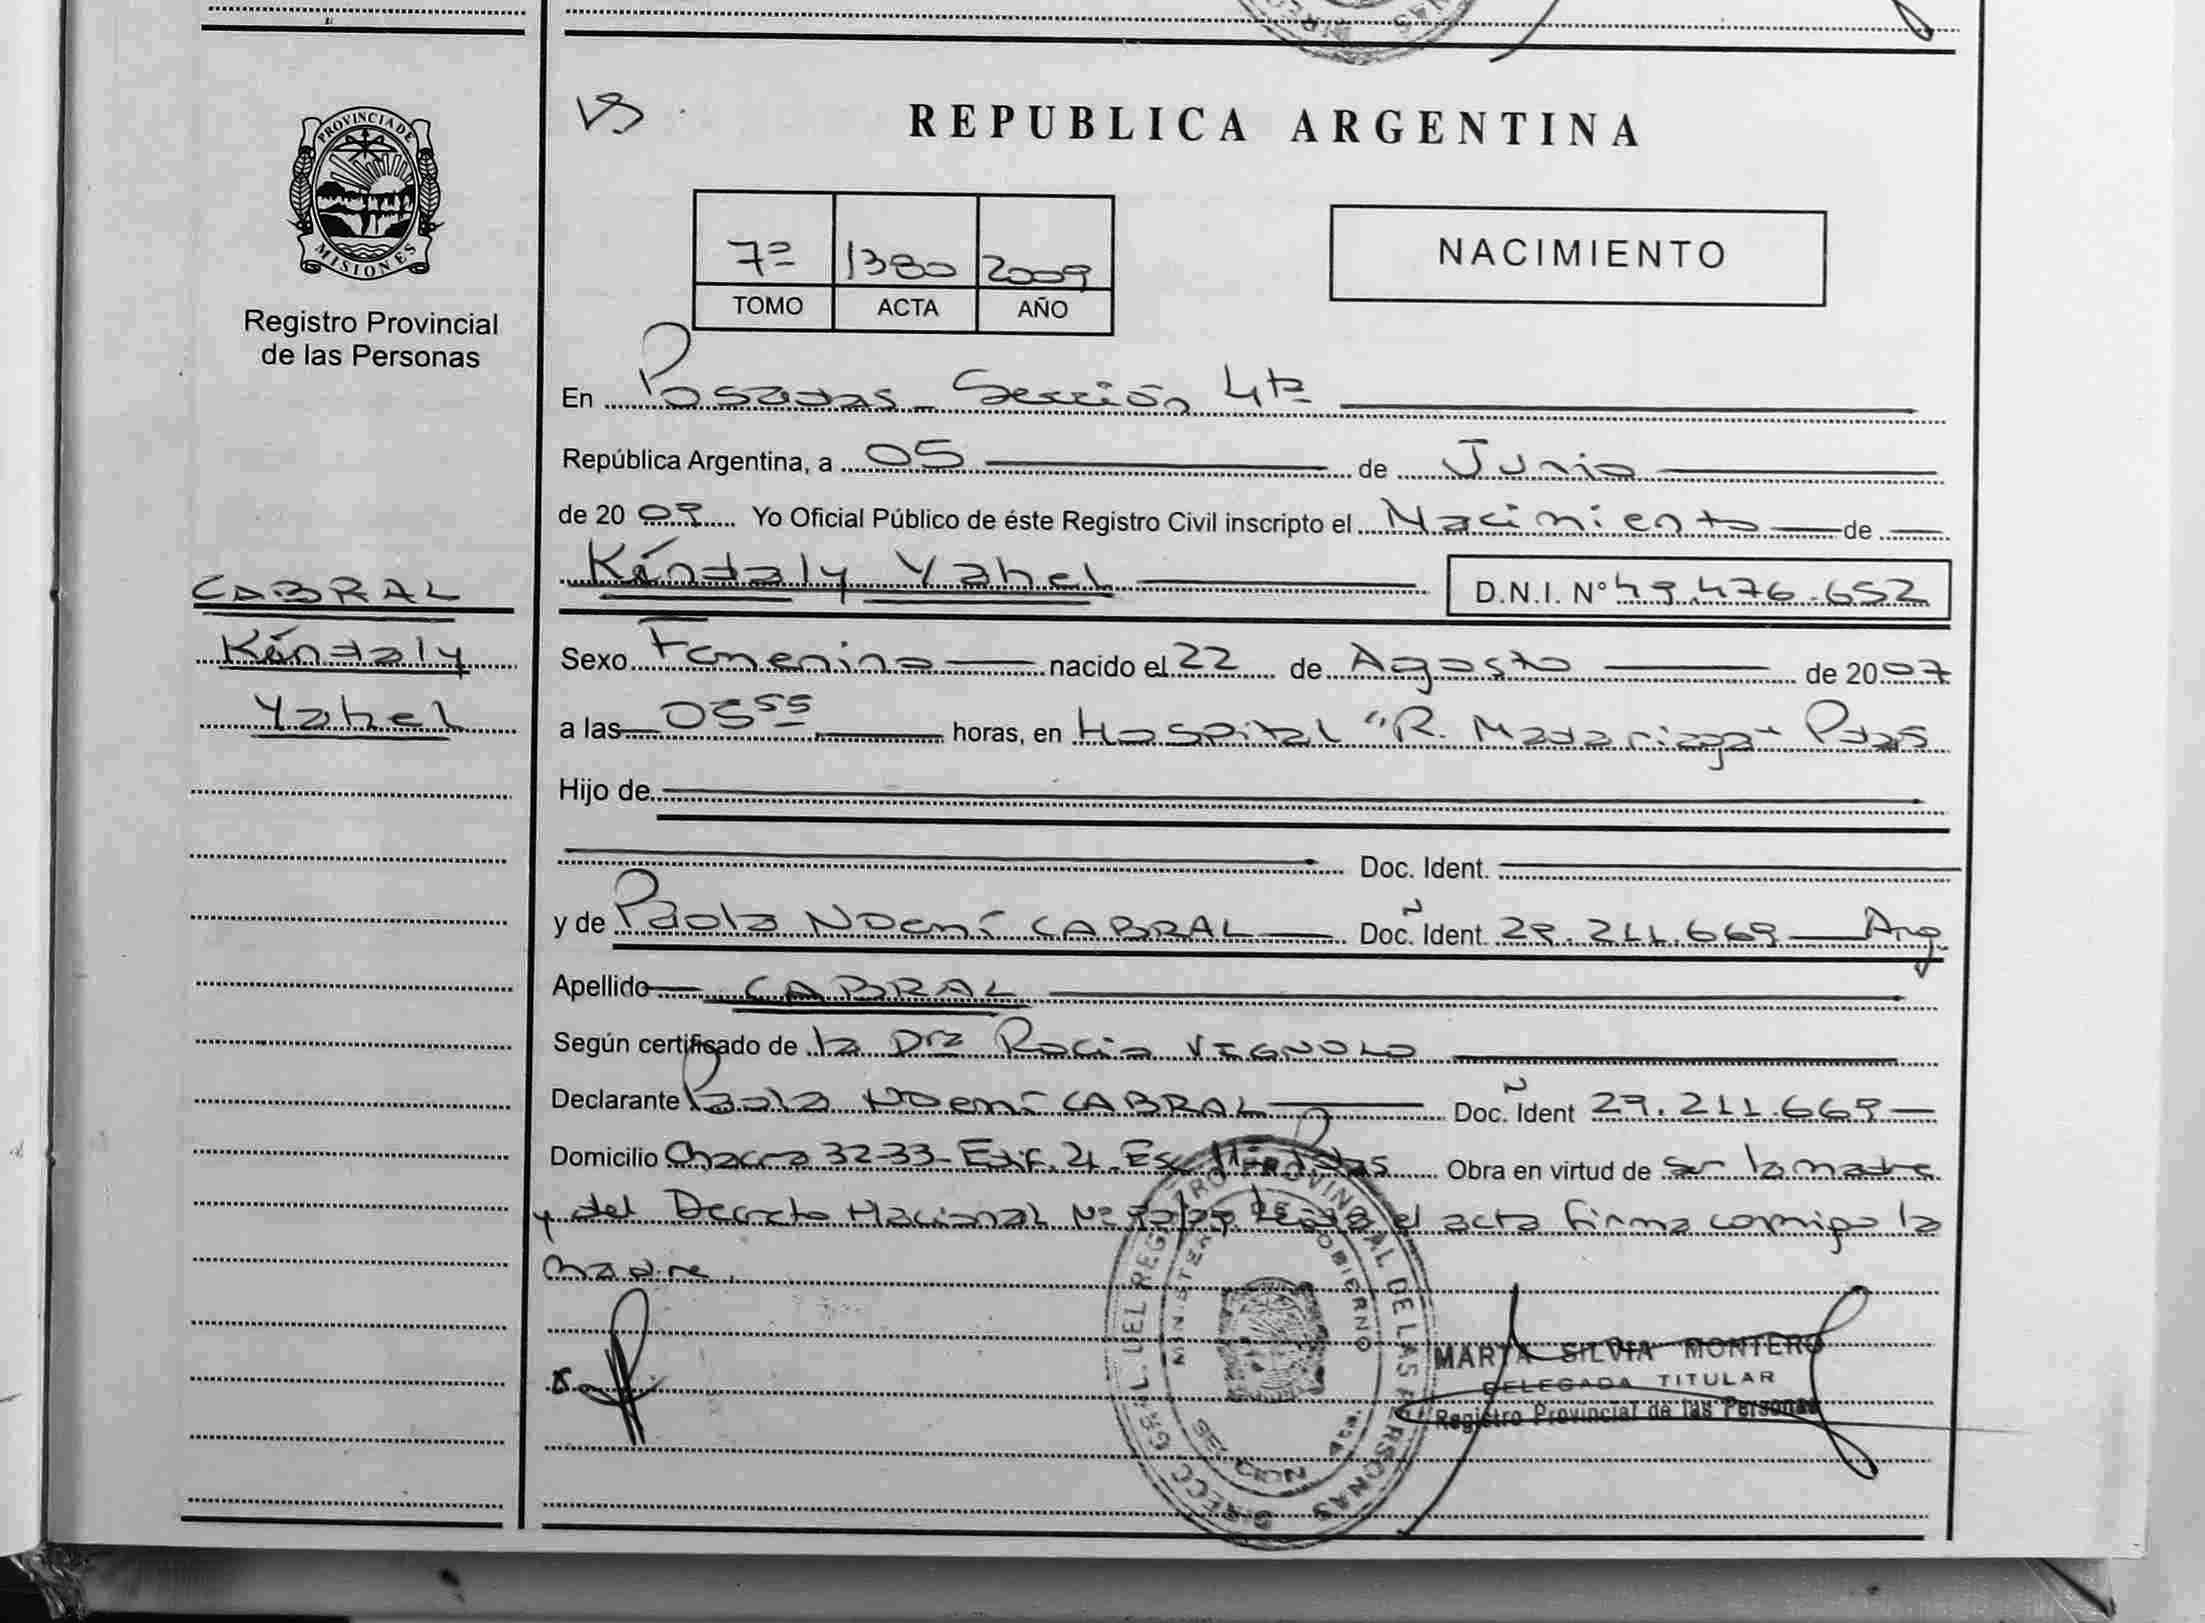 PROVINCIA DE
MISIONES
Registro Provincial
de las Personas
CABRAL
Kíndaly
Yahel
REPUBLICA ARGENTINA
7º 1380 2009
TOMO ACTA AÑO
NACIMIENTO
En Posadas - Sección 4ta
República Argentina, a 05 de Junio
de 2009 Yo Oficial Público de éste Registro Civil inscripto el Nacimiento de
Kíndaly Yahel D.N.I. Nº 49.476.652
Sexo Femenino nacido el 22 de Agosto de 2007
a las 0555 horas, en Hospital "R. Madariaga" Pdas
Hijo de
Doc. Ident.
y de Paola Noemí CABRAL Doc. Ident. 29.211.669 Arg.
Apellido CABRAL
Según certificado de la Dra Rocio VIGNOLO
Declarante Paola Noemí CABRAL Doc. Ident 29.211.669
Domicilio Chacra 32-33- Edif. 21 Esc. Pdas Obra en virtud de ser la madre
y del Decreto Nacional Nº Leída el acta firma conmigo la
madre.
MARTA SILVIA MONTERO
DELEGADA TITULAR
Registro Provincial de las Personas
DIRECC. GRAL. DEL REGISTRO PROVINCIAL DE LAS PERSONAS
MINISTERIO DE GOBIERNO
SECCION 4ta